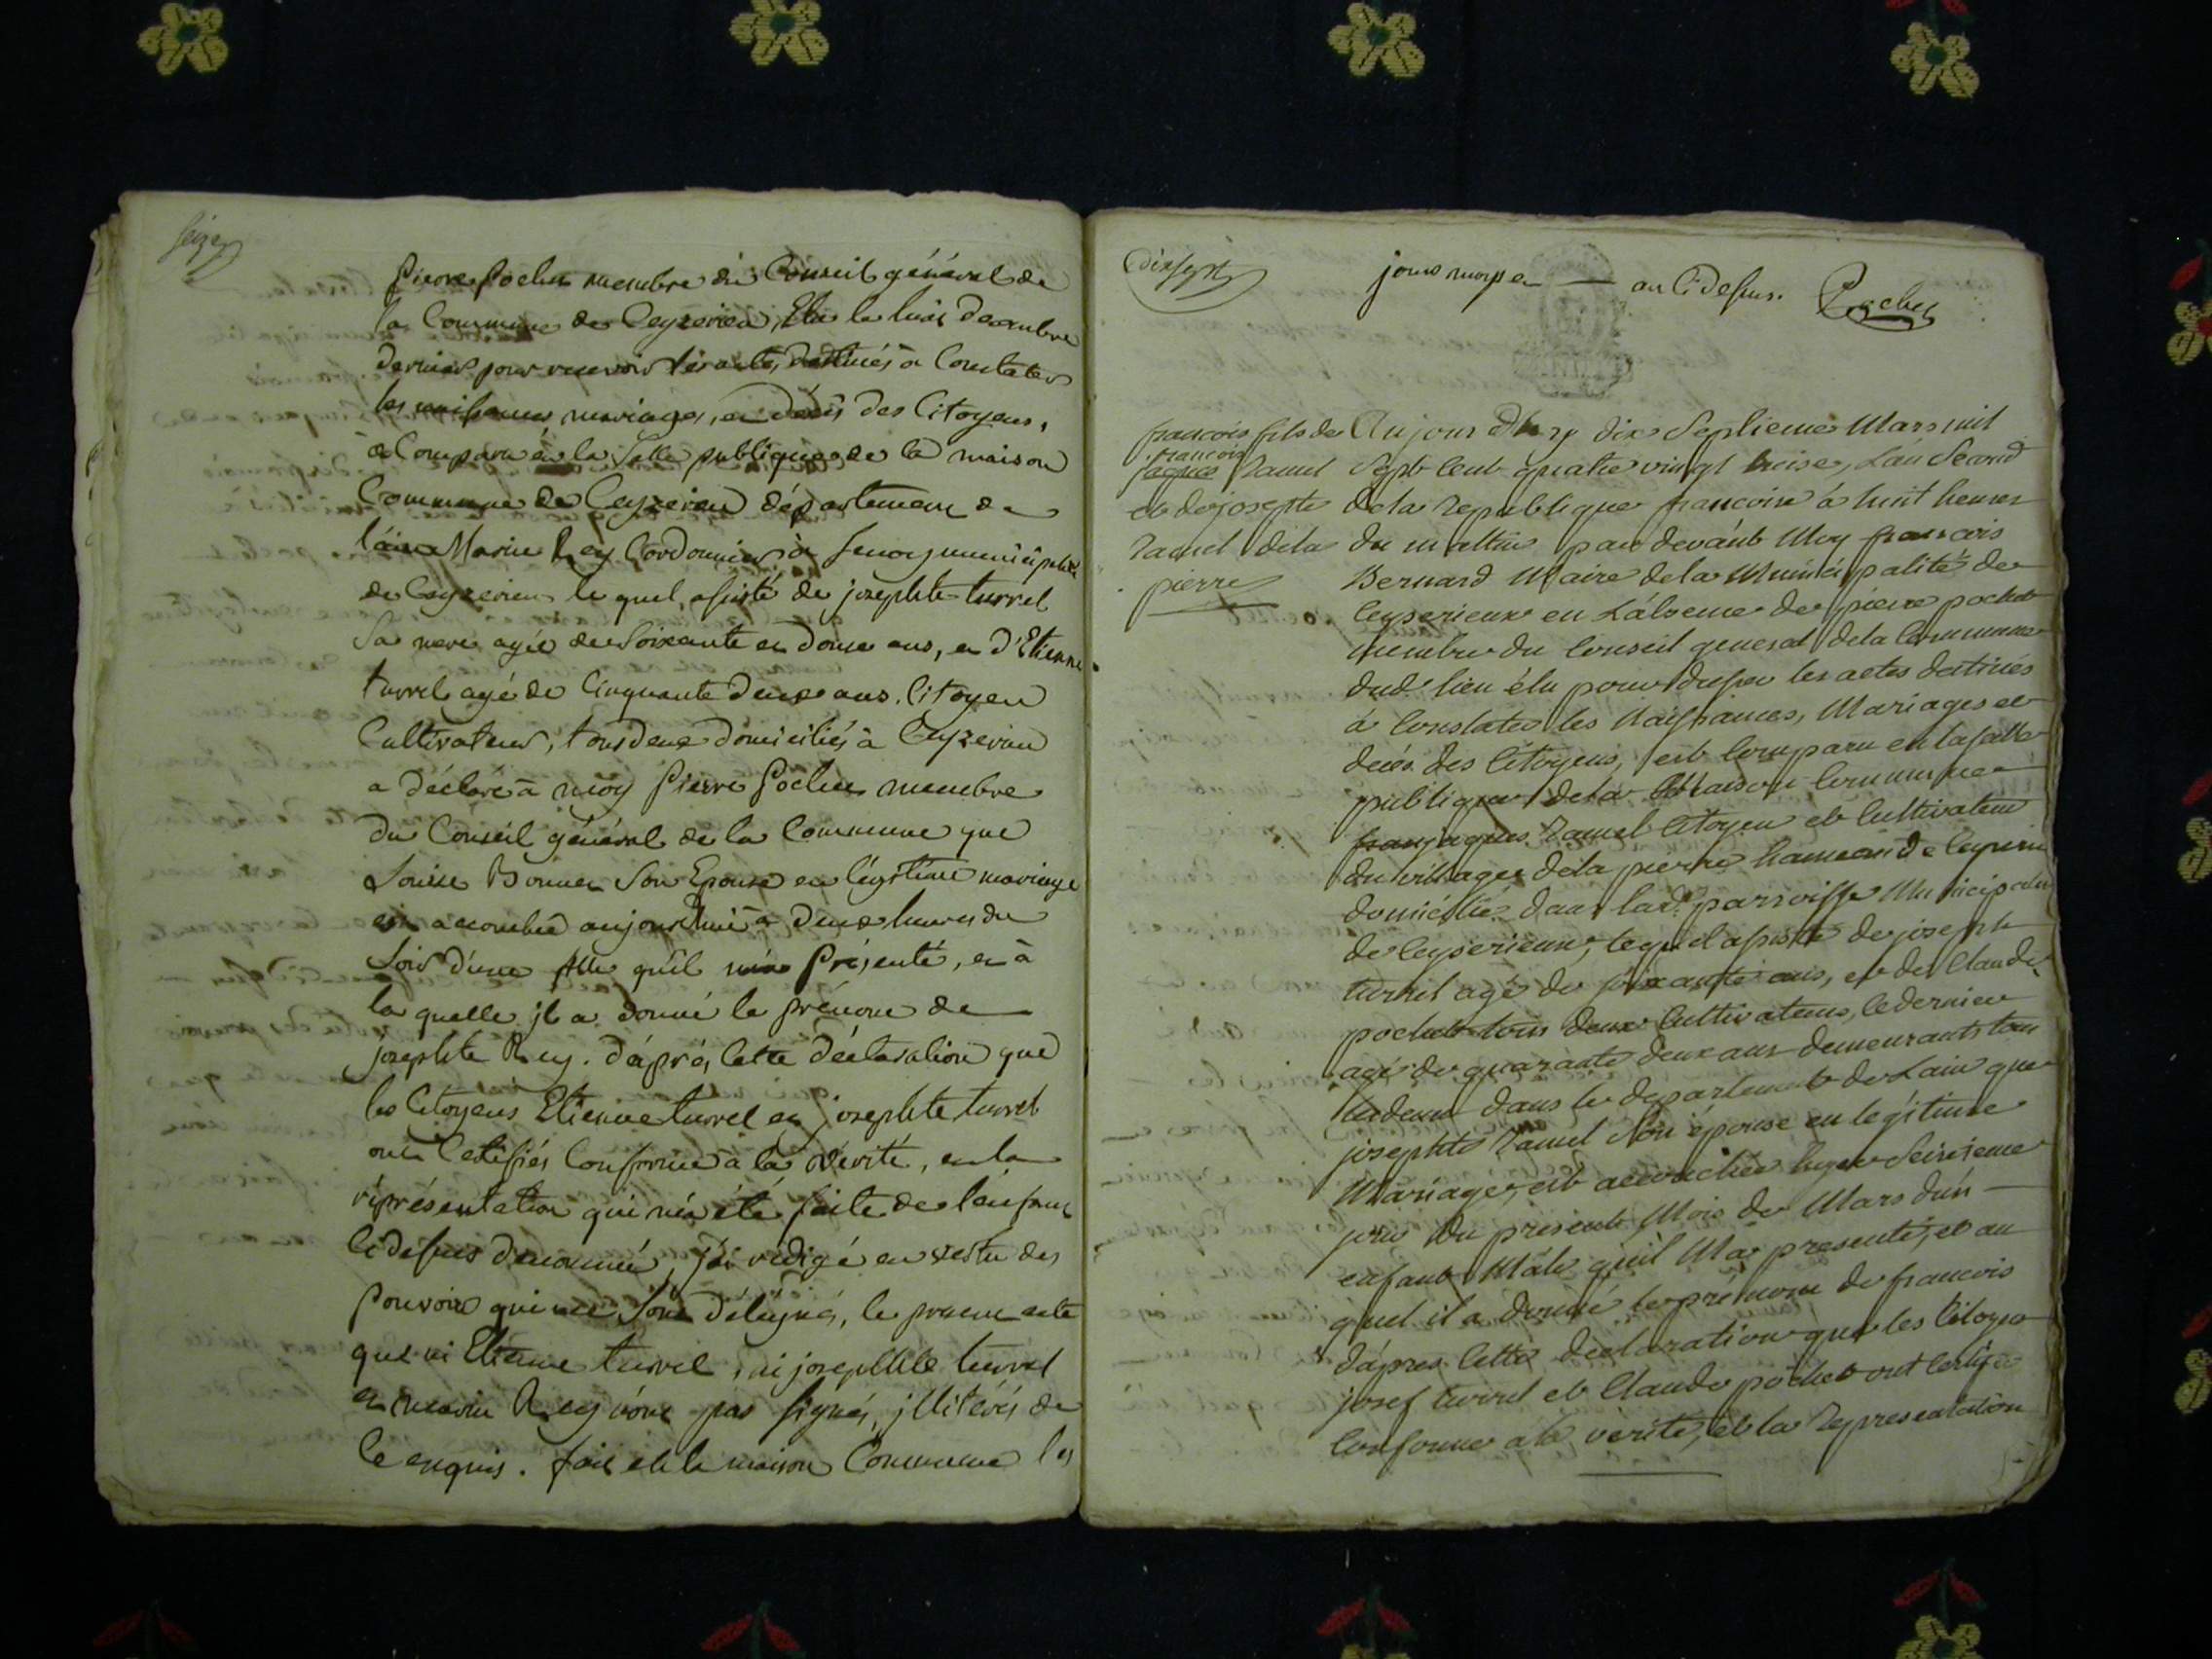 seize
Pierre Pochet membre du Conseil général de
la Commune de Ceyzerieu, Elu le huit Decembre
dernier pour recevoir les actes, destinés à Constater
les naissances, mariages, et décès des Citoyens,
a Comparu en la Salle publique de la maison
Commune de Ceyzerieu département de
l'ain Marin Rey Cordonnier à
de Ceyzerieu le quel assisté de josephte turrel
Sa mere agée de Soixante et Douze ans, et d'Etienne
turrel agé de Cinquante Deux ans, Citoyen
Cultivateur, tous deux domiciliés à Ceyzerieu
a déclaré à moy Pierre Pochet membre
du Conseil général de la Commune que
Louise Bonnet Son Epouse en légitime mariage
est accouchée aujourdhui à Deux heures du
Soir d'une fille qu'il m'a Présenté, et à
la quelle jl a donné le prénom de
josephte Rey. d'après Cette déclaration que
les Citoyens Etienne turrel et josephte turrel
ont Certifiés Conforme à la vérité, et la
réprésentation qui m'a été faite de l'enfant
Cidessus dénommé, j'ai rédigé en vertu des
Pouvoirs qui me Sont délégués, le présent acte
que ni Etienne turrel, ni josephte turrel
et marin Rey n'ont pas signés, jllitérés de
Ce enquis. fait en la maison Commune les
dixsept
jours mois et — an Cidessus. Pochet
francois fils de
francois
jacques Ramel
et de josephte
Ramel de la
pierre
Aujour d'huy dix Septieme Mars mil
Sept Cent quatre vingt treise, L'an Second
de la Republique francoise à huit heures
du mattin par devant Moy francois
Bernard Maire de la Municipalité de
Ceyserieux en L'absence de pierre pochet
membre du Conseil general de la Commune
dud. lieu élu pour dresser les actes destinés
à Constater les Naissances, Mariages et
décés des Citoyens, est Comparu en la salle
publique de la Maison Commune
jacques Ramel Citoyen et Cultivateur
du village de la pierre hameau de
domicilié dans lad. parroisse Municipalité
de Ceyserieux, lequel assisté de joseph
turrel agé de soixante ans, et de Claude
pochet tous deux Cultivateurs, le dernier
agé de quarante deux ans demeurants tous
les deux dans le departement de Lain que
josephte Ramel Son épouse en legitime
Mariage, est accouchée hyer Seisieme
jour du present Mois de Mars d'un —
enfant Mâle qu'il M'a presenté, et au
quel il a donné le prénom de francois
d'apres Cette declaration que les Citoyens
josef turrel et Claude pochet ont Certifié
Conforme a la verité, et la Representation